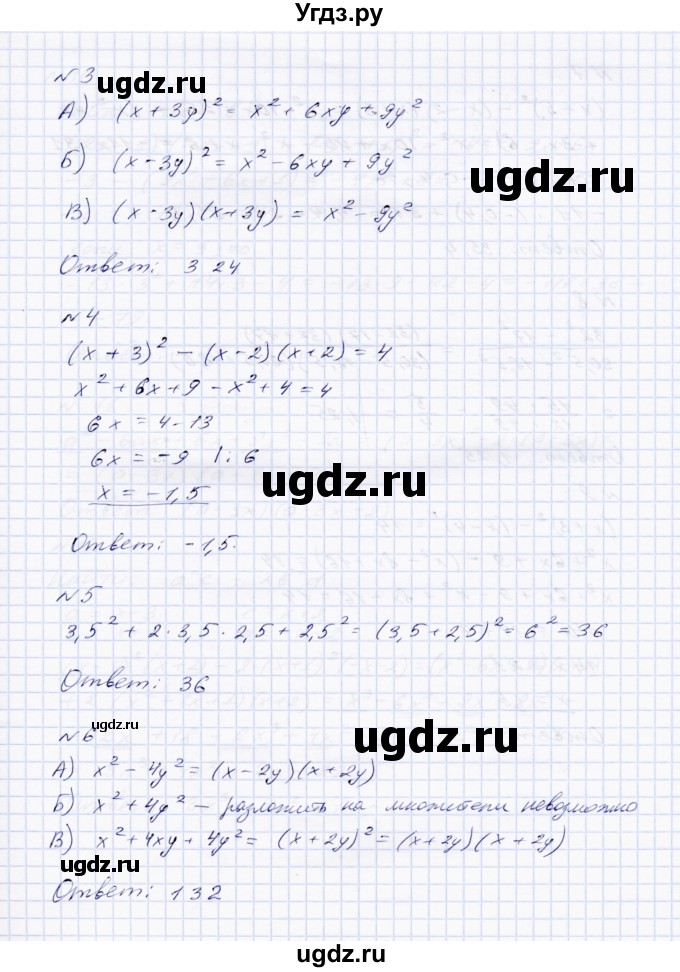 Угдз.ру
№3
ugdz.ru
А) (x + 3y)² = x² + 6xy + 9y²
Б) (x - 3y)² = x² - 6xy + 9y²
ugdz.ru
В) (x - 3y)(x + 3y) = x² - 9y²
Ответ: 3 2 4
№4
(x + 3)² - (x - 2)(x + 2) = 4
x² + 6x + 9 - x² + 4 = 4
6x = 4 - 13
6x = -9 | : 6
ugdz.ru
x = -1,5
Ответ: -1,5.
№5
3,5² + 2 · 3,5 · 2,5 + 2,5² = (3,5 + 2,5)² = 6² = 36
Ответ: 36
ugdz.ru
№6
ugdz.ru
А) x² - 4y² = (x - 2y)(x + 2y)
Б) x² + 4y² - разложить на множители невозможно
В) x² + 4xy + 4y² = (x + 2y)² = (x + 2y)(x + 2y)
ugdz.ru
Ответ: 1 3 2
ugdz.ru